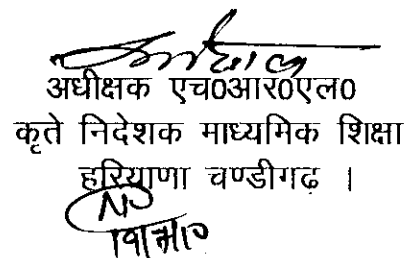 अधीक्षक एच0आर0एल0
कृते निदेशक माध्यमिक शिक्षा
हरियाणा चण्डीगढ ।